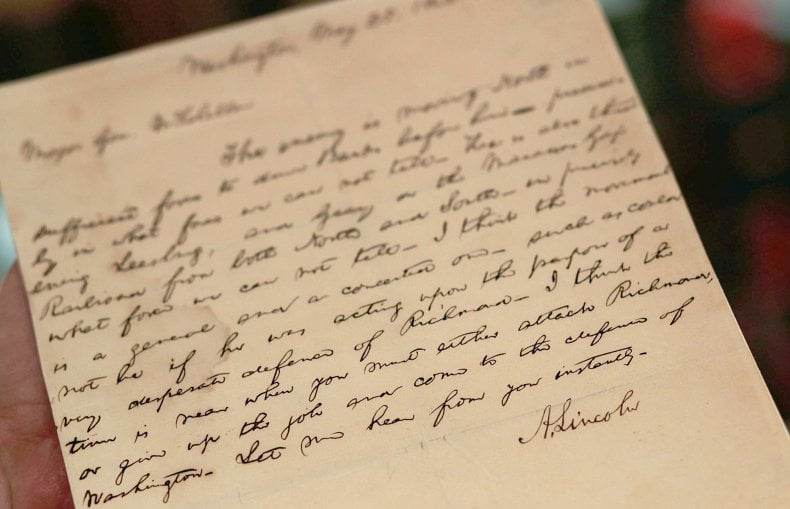 Washington, May 25. 186
Major Gen. McClellan
The enemy is moving North in
sufficient force to drive Banks before him— precise-
ly in what force we can not tell— He is also threat-
ening Leesburg, and Geary on the Manassas Gap
Railroad from both North and South— in precisely
what force we can not tell— I think the movement
is a general and a concerted one— such as could
not be if he was acting upon the purpose of a
very desperate defence of Richmond— I think the
time is near when you must either attack Richmond,
or give up the job and come to the defence of
Washington— Let me hear from you instantly—
A. Lincoln